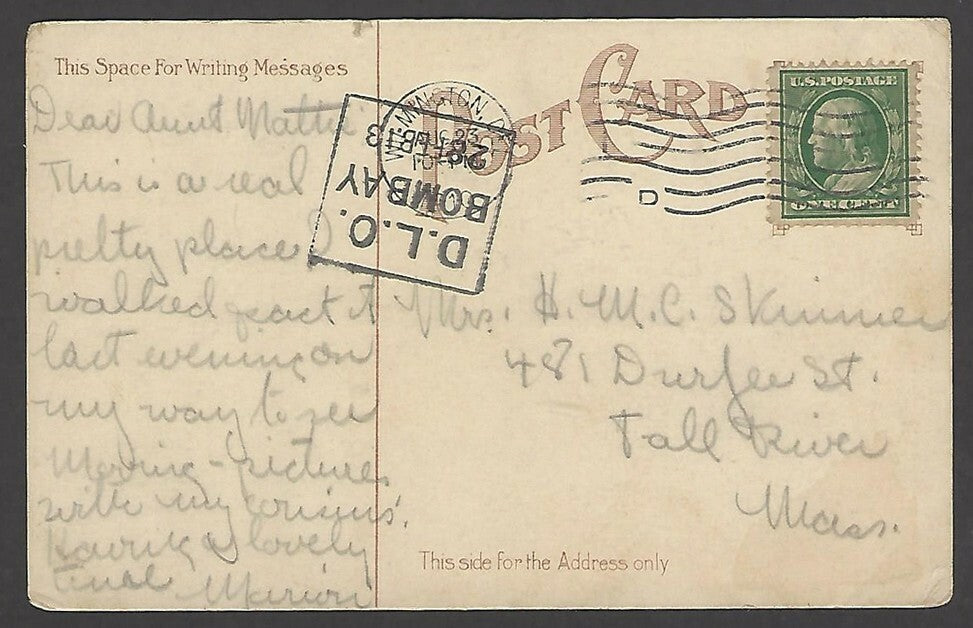 This Space For Writing Messages
POST CARD
U.S. POSTAGE
ONE CENT
WILMINGTON, D
23
D
D.L.O.
BOMBAY
13
Dear Aunt Mattie
This is a real
pretty place I
walked past it
last evening on
my way to see
Moving-pictures
with my cousins.
Having a lovely
time Marion
Mrs. H. M. C. Skinner
481 Durfee St.
Fall River
Mass.
This side for the Address only